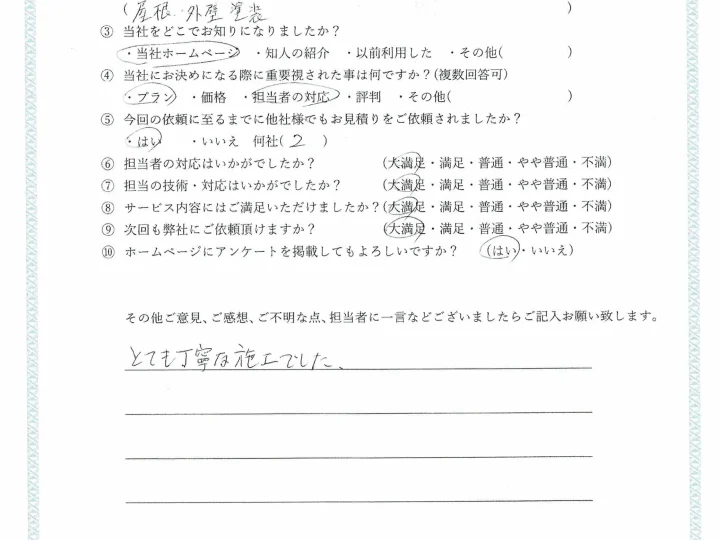 (屋根・外壁塗装)
③ 当社をどこでお知りになりましたか？
・当社ホームページ ・知人の紹介 ・以前利用した ・その他( )
④ 当社にお決めになる際に重要視された事は何ですか？(複数回答可)
・プラン ・価格 ・担当者の対応 ・評判 ・その他( )
⑤ 今回の依頼に至るまでに他社様でもお見積りをご依頼されましたか？
・はい ・いいえ 何社( 2 )
⑥ 担当者の対応はいかがでしたか？ (大満足・満足・普通・やや普通・不満)
⑦ 担当の技術・対応はいかがでしたか？ (大満足・満足・普通・やや普通・不満)
⑧ サービス内容にはご満足いただけましたか？(大満足・満足・普通・やや普通・不満)
⑨ 次回も弊社にご依頼頂けますか？ (大満足・満足・普通・やや普通・不満)
⑩ ホームページにアンケートを掲載してもよろしいですか？ (はい・いいえ)
その他ご意見、ご感想、ご不明な点、担当者に一言などございましたらご記入お願い致します。
とても丁寧な施工でした、